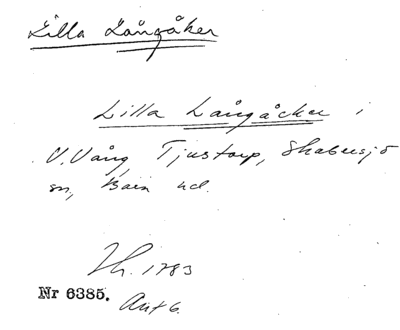 Lilla Långåker
Lilla Långåcker i
V. Vång, Tjustorp, Skabersjö
sn, Bara hd.
Th. 1783
Nr 6385. Akt 6.